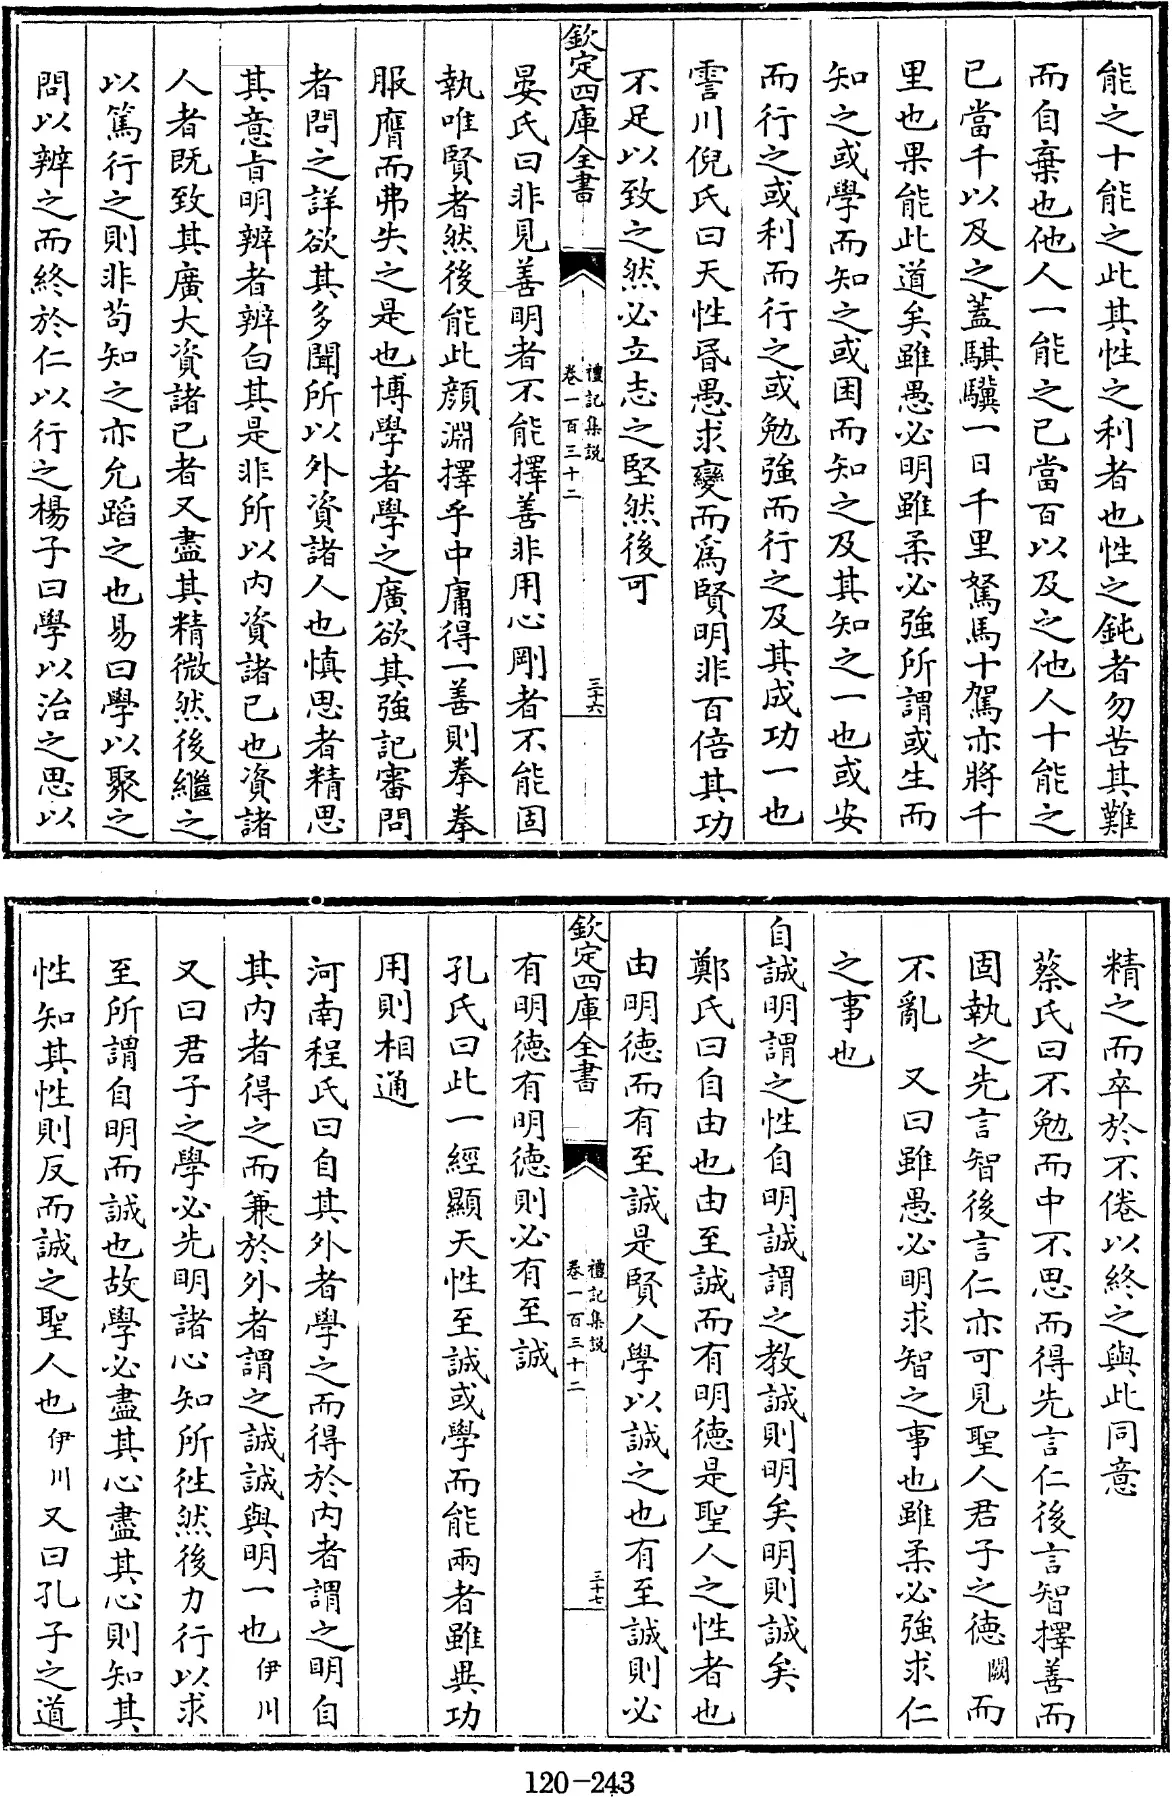 能之十能之此其性之利者也性之鈍者勿苦其難
而自棄也他人一能之已當百以及之他人十能之
已當千以及之蓋騏驥一日千里駑馬十駕亦將千
里也果能此道矣雖愚必明雖柔必強所謂或生而
知之或學而知之或困而知之及其知之一也或安
而行之或利而行之或勉強而行之及其成功一也
霅川倪氏曰天性昏愚求變而為賢明非百倍其功
不足以致之然必立志之堅然後可
欽定四庫全書
禮記集說
卷一百三十二
三十六
晏氏曰非見善明者不能擇善非用心剛者不能固
執唯賢者然後能此顏淵擇乎中庸得一善則拳拳
服膺而弗失之是也博學者學之廣欲其強記審問
者問之詳欲其多聞所以外資諸人也慎思者精思
其意旨明辨者辨白其是非所以內資諸已也資諸
人者既致其廣大資諸已者又盡其精微然後繼之
以篤行之則非苟知之亦允蹈之也易曰學以聚之
問以辨之而終於仁以行之楊子曰學以治之思以
精之而卒於不倦以終之與此同意
蔡氏曰不勉而中不思而得先言仁後言智擇善而
固執之先言智後言仁亦可見聖人君子之德闕而
不亂 又曰雖愚必明求智之事也雖柔必強求仁
之事也
自誠明謂之性自明誠謂之教誠則明矣明則誠矣
鄭氏曰自由也由至誠而有明德是聖人之性者也
由明德而有至誠是賢人學以誠之也有至誠則必
欽定四庫全書
禮記集說
卷一百三十二
三十七
有明德有明德則必有至誠
孔氏曰此一經顯天性至誠或學而能兩者雖異功
用則相通
河南程氏曰自其外者學之而得於內者謂之明自
其內者得之而兼於外者謂之誠誠與明一也伊川
又曰君子之學必先明諸心知所徃然後力行以求
至所謂自明而誠也故學必盡其心盡其心則知其
性知其性則反而誠之聖人也伊川又曰孔子之道
120-243